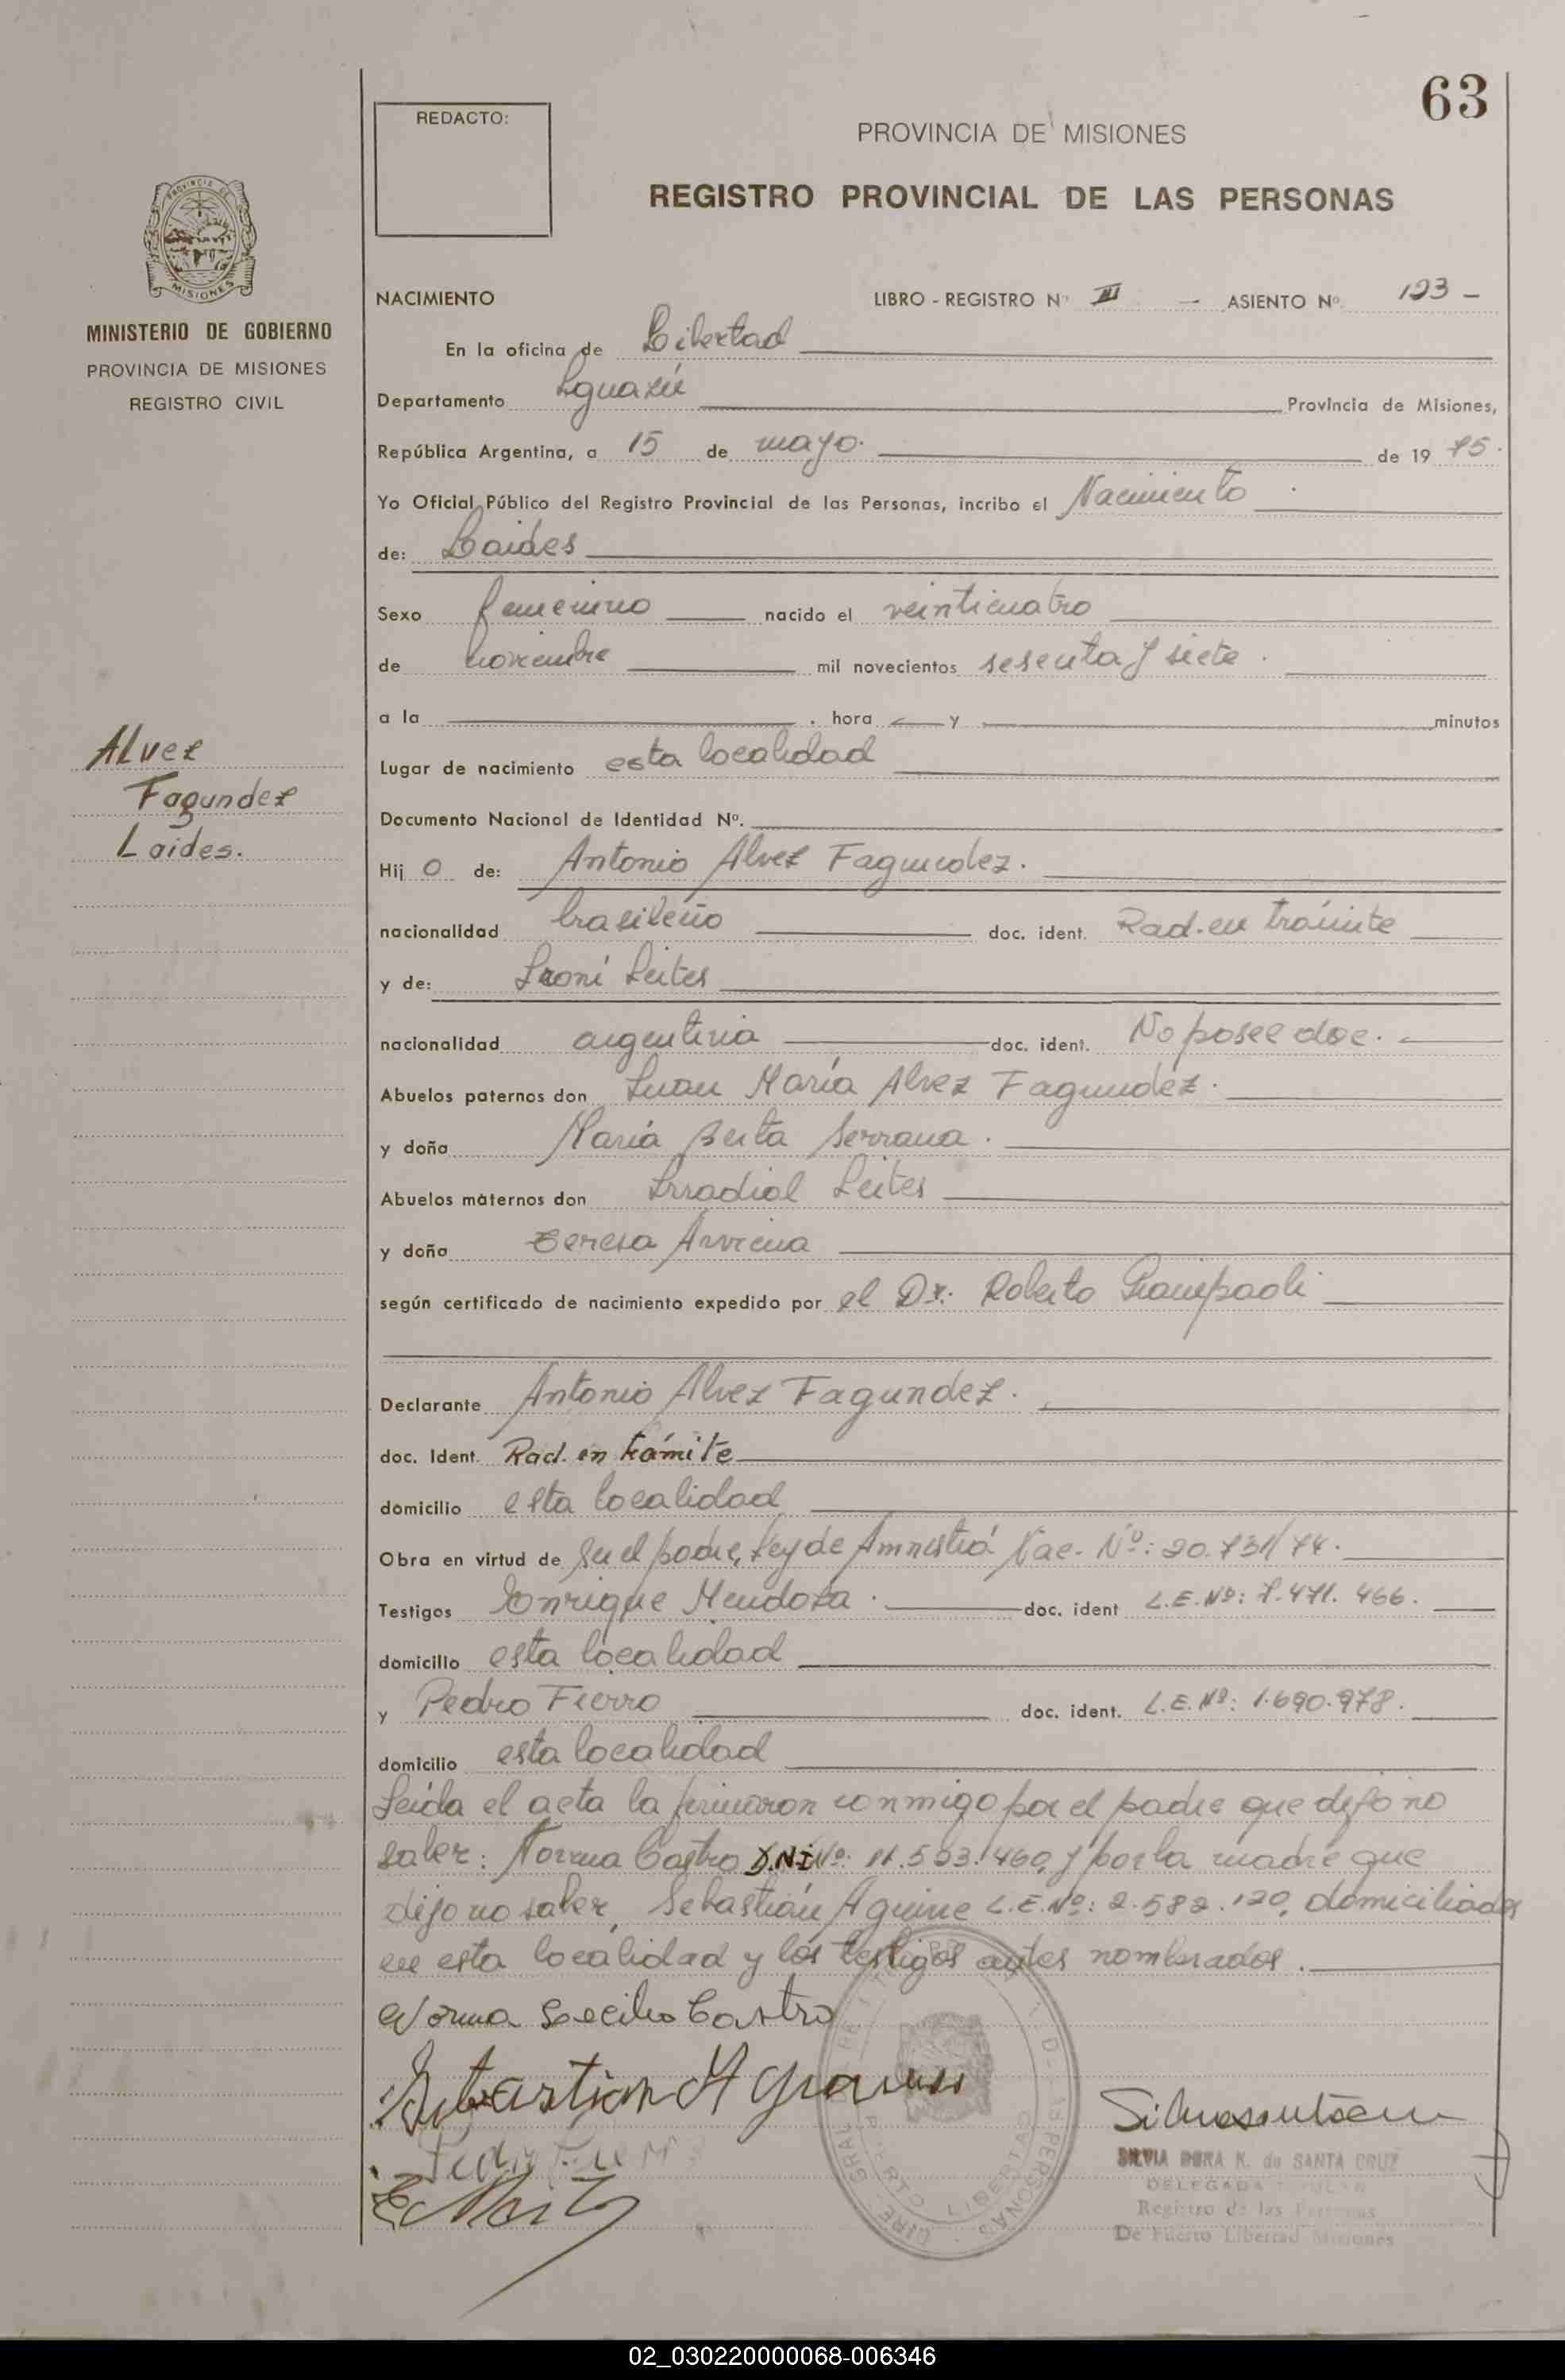 63
REDACTO:
PROVINCIA DE MISIONES
REGISTRO PROVINCIAL DE LAS PERSONAS
MISIONES
MINISTERIO DE GOBIERNO
PROVINCIA DE MISIONES
REGISTRO CIVIL
NACIMIENTO LIBRO - REGISTRO Nº III - ASIENTO Nº 123 -
En la oficina de Libertad
Departamento Iguazú Provincia de Misiones,
República Argentina, a 15 de mayo. de 19 75.
Yo Oficial Público del Registro Provincial de las Personas, incribo el Nacimiento
de: Laides
Sexo femenino nacido el veinticuatro
de noviembre mil novecientos sesenta y siete.
a la . hora y minutos
Alvez
Fagundez
Laides.
Lugar de nacimiento esta localidad
Documento Nacional de Identidad Nº.
Hij o de: Antonio Alvez Fagundez.
nacionalidad brasileño doc. ident. Rad. en trámite
y de: Leites
nacionalidad argentina doc. ident. No posee doc.
Abuelos paternos don Juan María Alvez Fagundez.
y doña María Berta Serrana.
Abuelos maternos don Leites
y doña Teresa
según certificado de nacimiento expedido por el Dr. Roberto Giampaoli
Declarante Antonio Alvez Fagundez.
doc. Ident. Rad. en trámite
domicilio esta localidad
Obra en virtud de ser el padre, Ley de Amnistiá Nac. Nº: 20.731/74.
Testigos Enrique Mendoza. doc. ident L.E.Nº: 7.471.466.
domicilio esta localidad
y Pedro Fierro doc. ident. L.E.Nº: 1.690.978.
domicilio esta localidad
Leída el acta la firmaron conmigo por el padre que dijo no
saber: Norma Castro D.N.I Nº: 11.593.460, y por la madre que
dijo no saber, Sebastián Aguirre L.E.Nº: 2.582.120, domiciliados
en esta localidad y los testigos antes nombrados.
Norma Castro
Sebastian
SILVIA DORA K. de SANTA CRUZ
DELEGADA TITULAR
Registro de las Personas
De Puerto Libertad Misiones
02_030220000068-006346